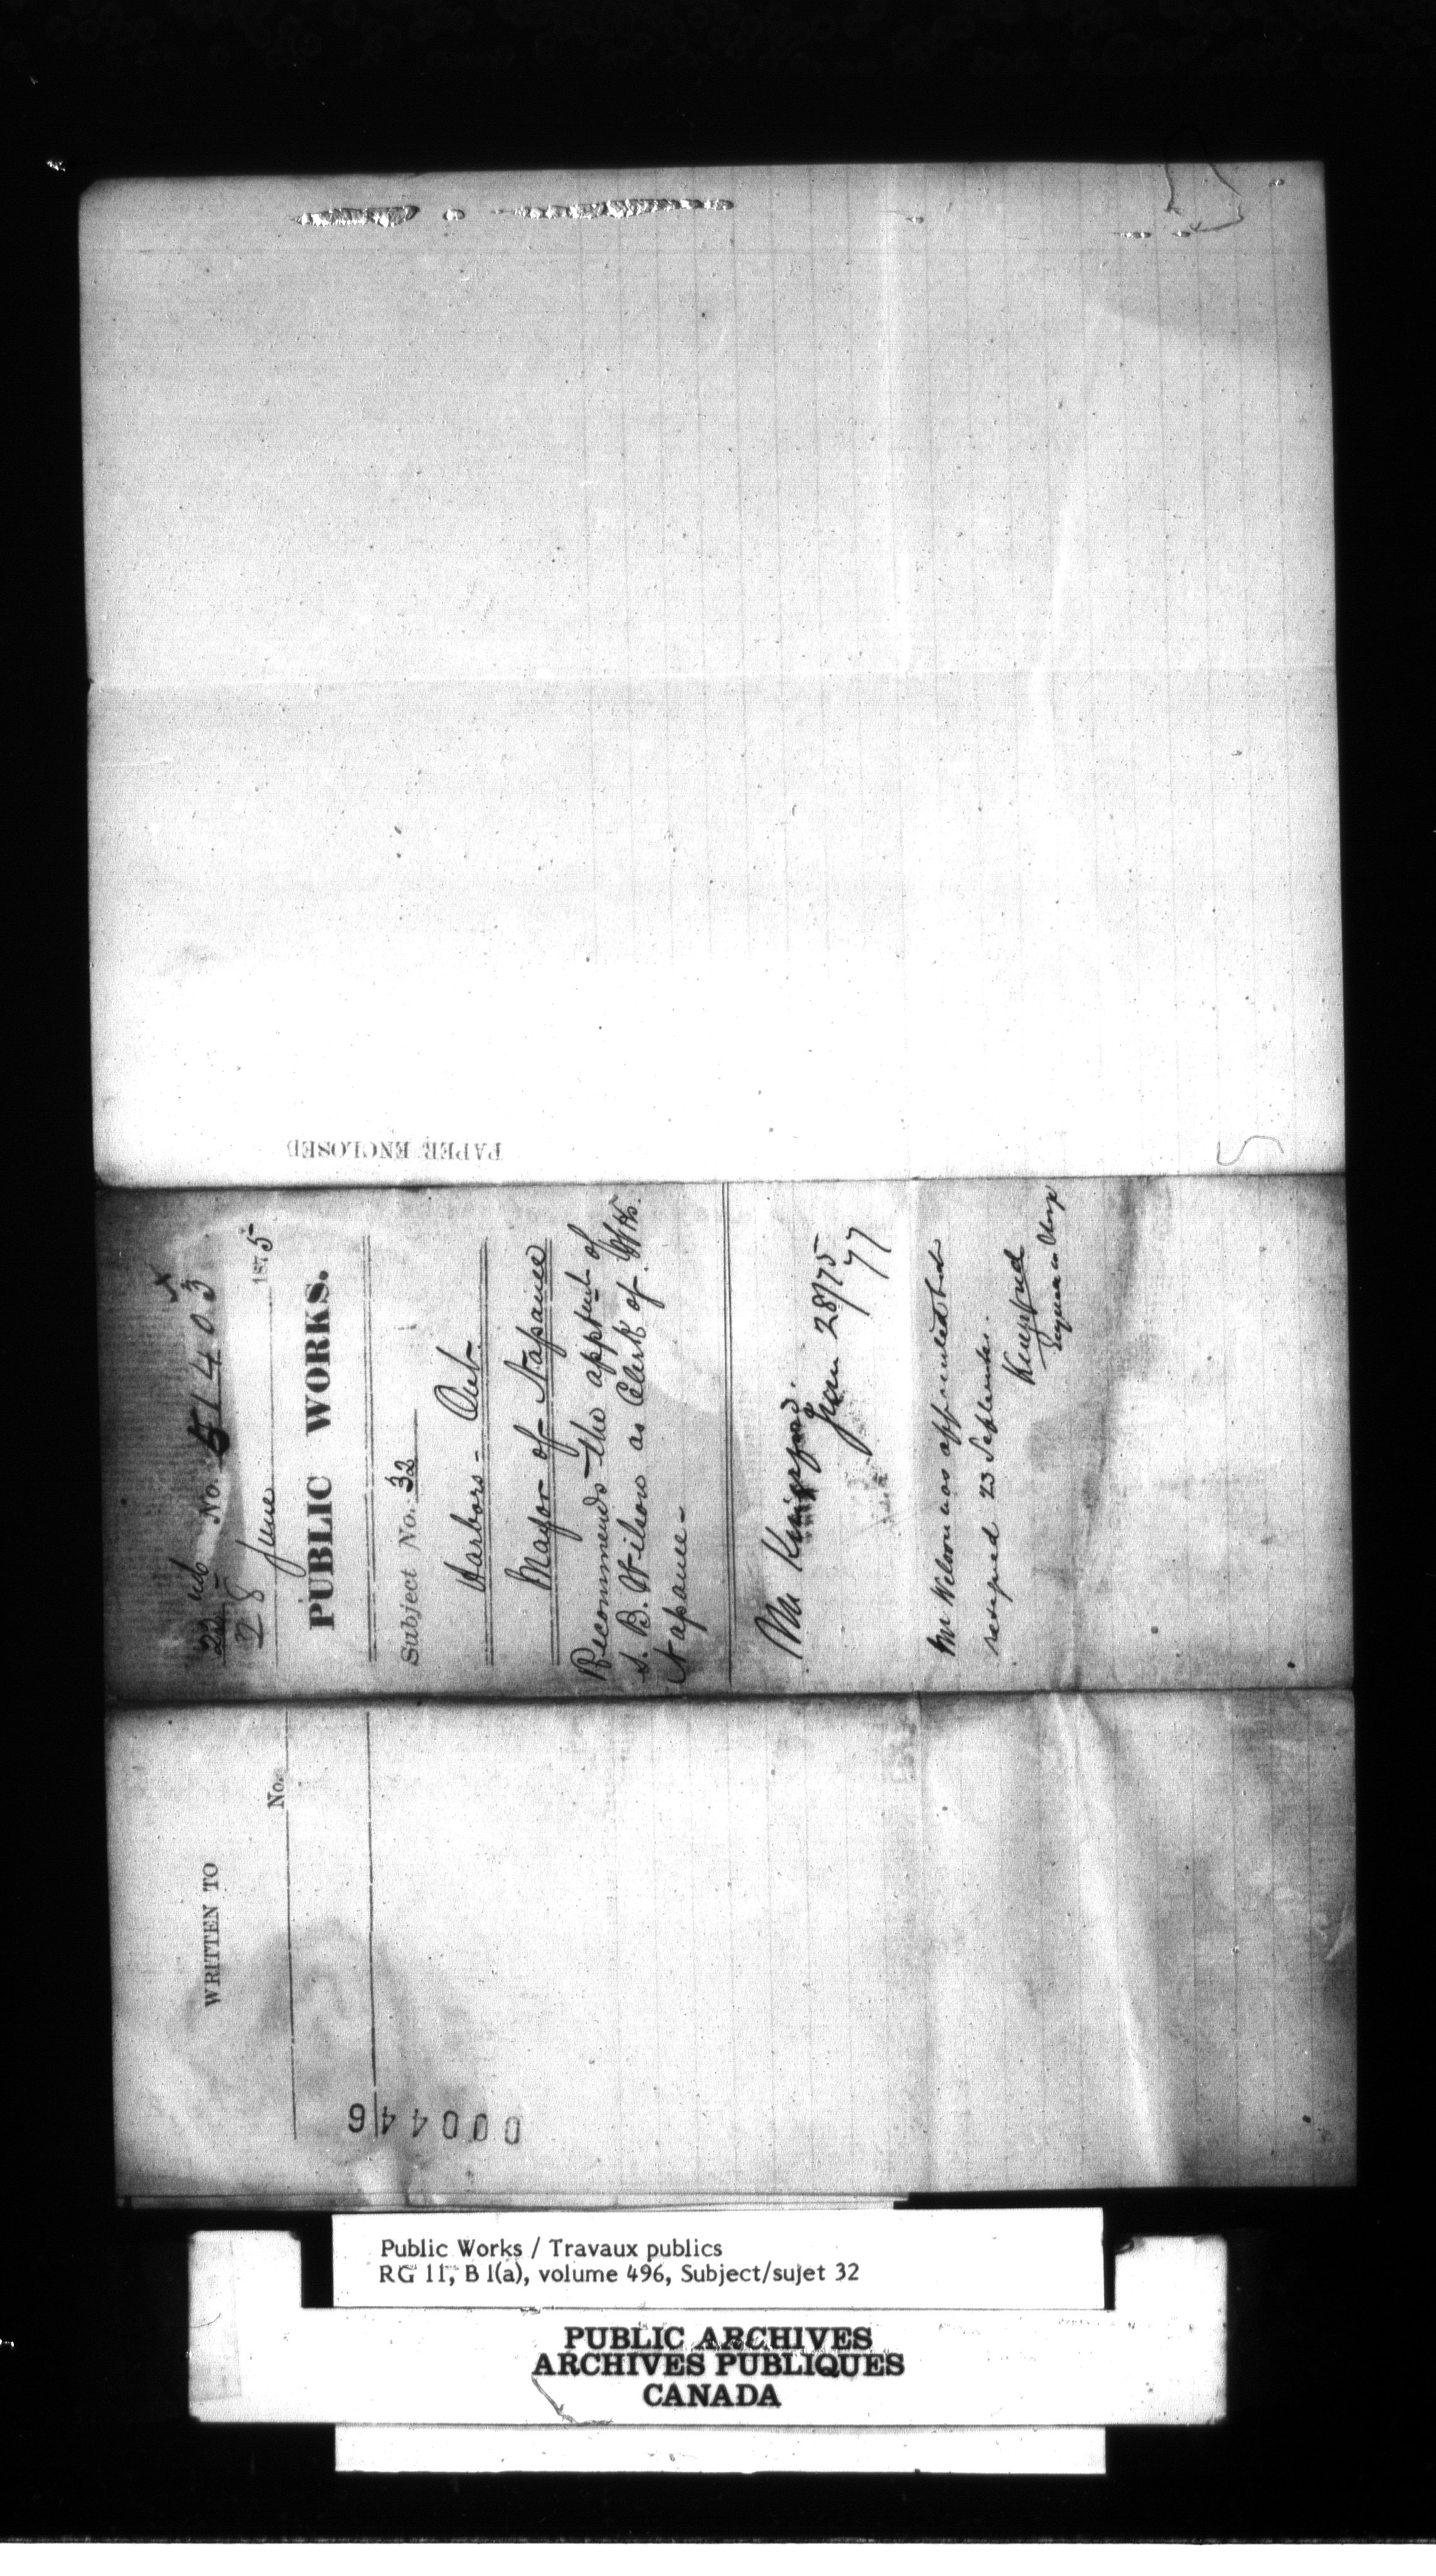 PAPER ENCLOSED
22nd No. 51403
28 June 1875
PUBLIC WORKS.
Subject No. 32
Harbors - Ont.
Mayor of Napanee
Recommends the apptmt of
S. B. Wilson as Clerk of Wks.
Napanee -
Mr Kingsford.
28/75
77
Mr Wilson was appointed but
resigned 23 September.
Kingsford
Engineer in Charge
WRITTEN TO
No.
000446
Public Works / Travaux publics
RG 11, B 1(a), volume 496, Subject/sujet 32
PUBLIC ARCHIVES
ARCHIVES PUBLIQUES
CANADA